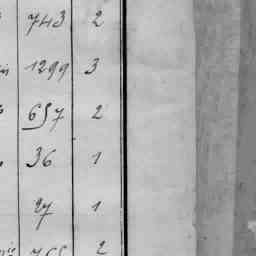 743 2
1299 3
657 2
36 1
27 1
2